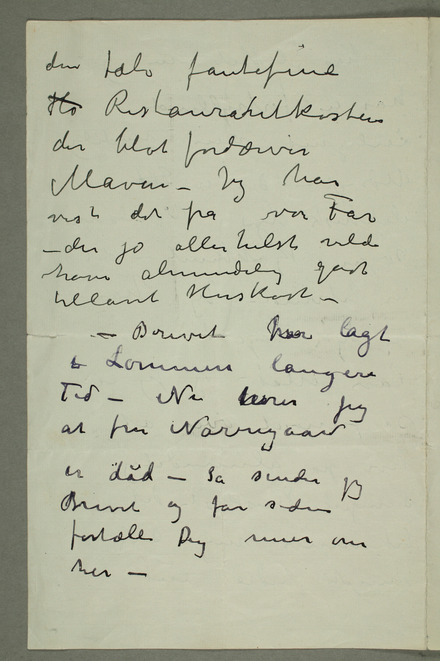 den fæle fantefine
Ho Restaurantkosten
der blot fordærver
Maven – Jeg har
vist det fra vor Far
– der jo allerhelst vilde
have almindelig godt
tillavet Huskost –
– Brevet har lagt
i Lommen længere
Tid – Nu hører jeg
at fru Nørregaard
er død – Så sender jeg
Brevet og får siden
fortælle Dig mer om
her –